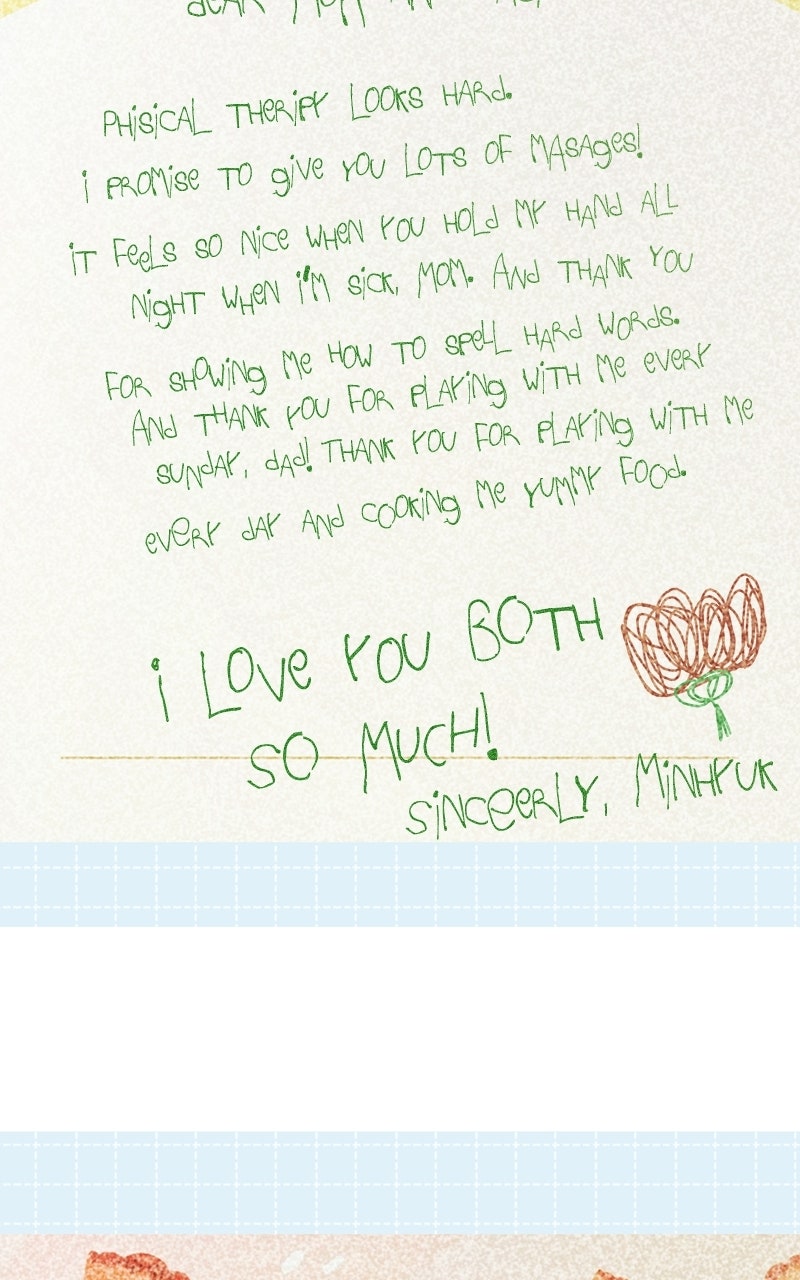 PHiSiCAL THeRiPY LOOKS HARd.
i PROMiSe TO giVe YOU LOTS OF MASAges!
iT FeeLS SO NiCe WHeN YOU HOLd MY HANd ALL
NigHT WHeN i'M SiCK, MOM. ANd THANK YOU
FOR SHOWiNg Me HOW TO SPeLL HARd WORdS.
ANd THANK YOU FOR PLAYiNg WiTH Me eVeRY
SUNdAY, dAd! THANK YOU FOR PLAYiNg WiTH Me
eVeRY dAY ANd COOKiNg Me YUMMY FOOd.
i LOVe YOU BOTH
SO MUCH!
SiNCeeRLY, MiNHYUK